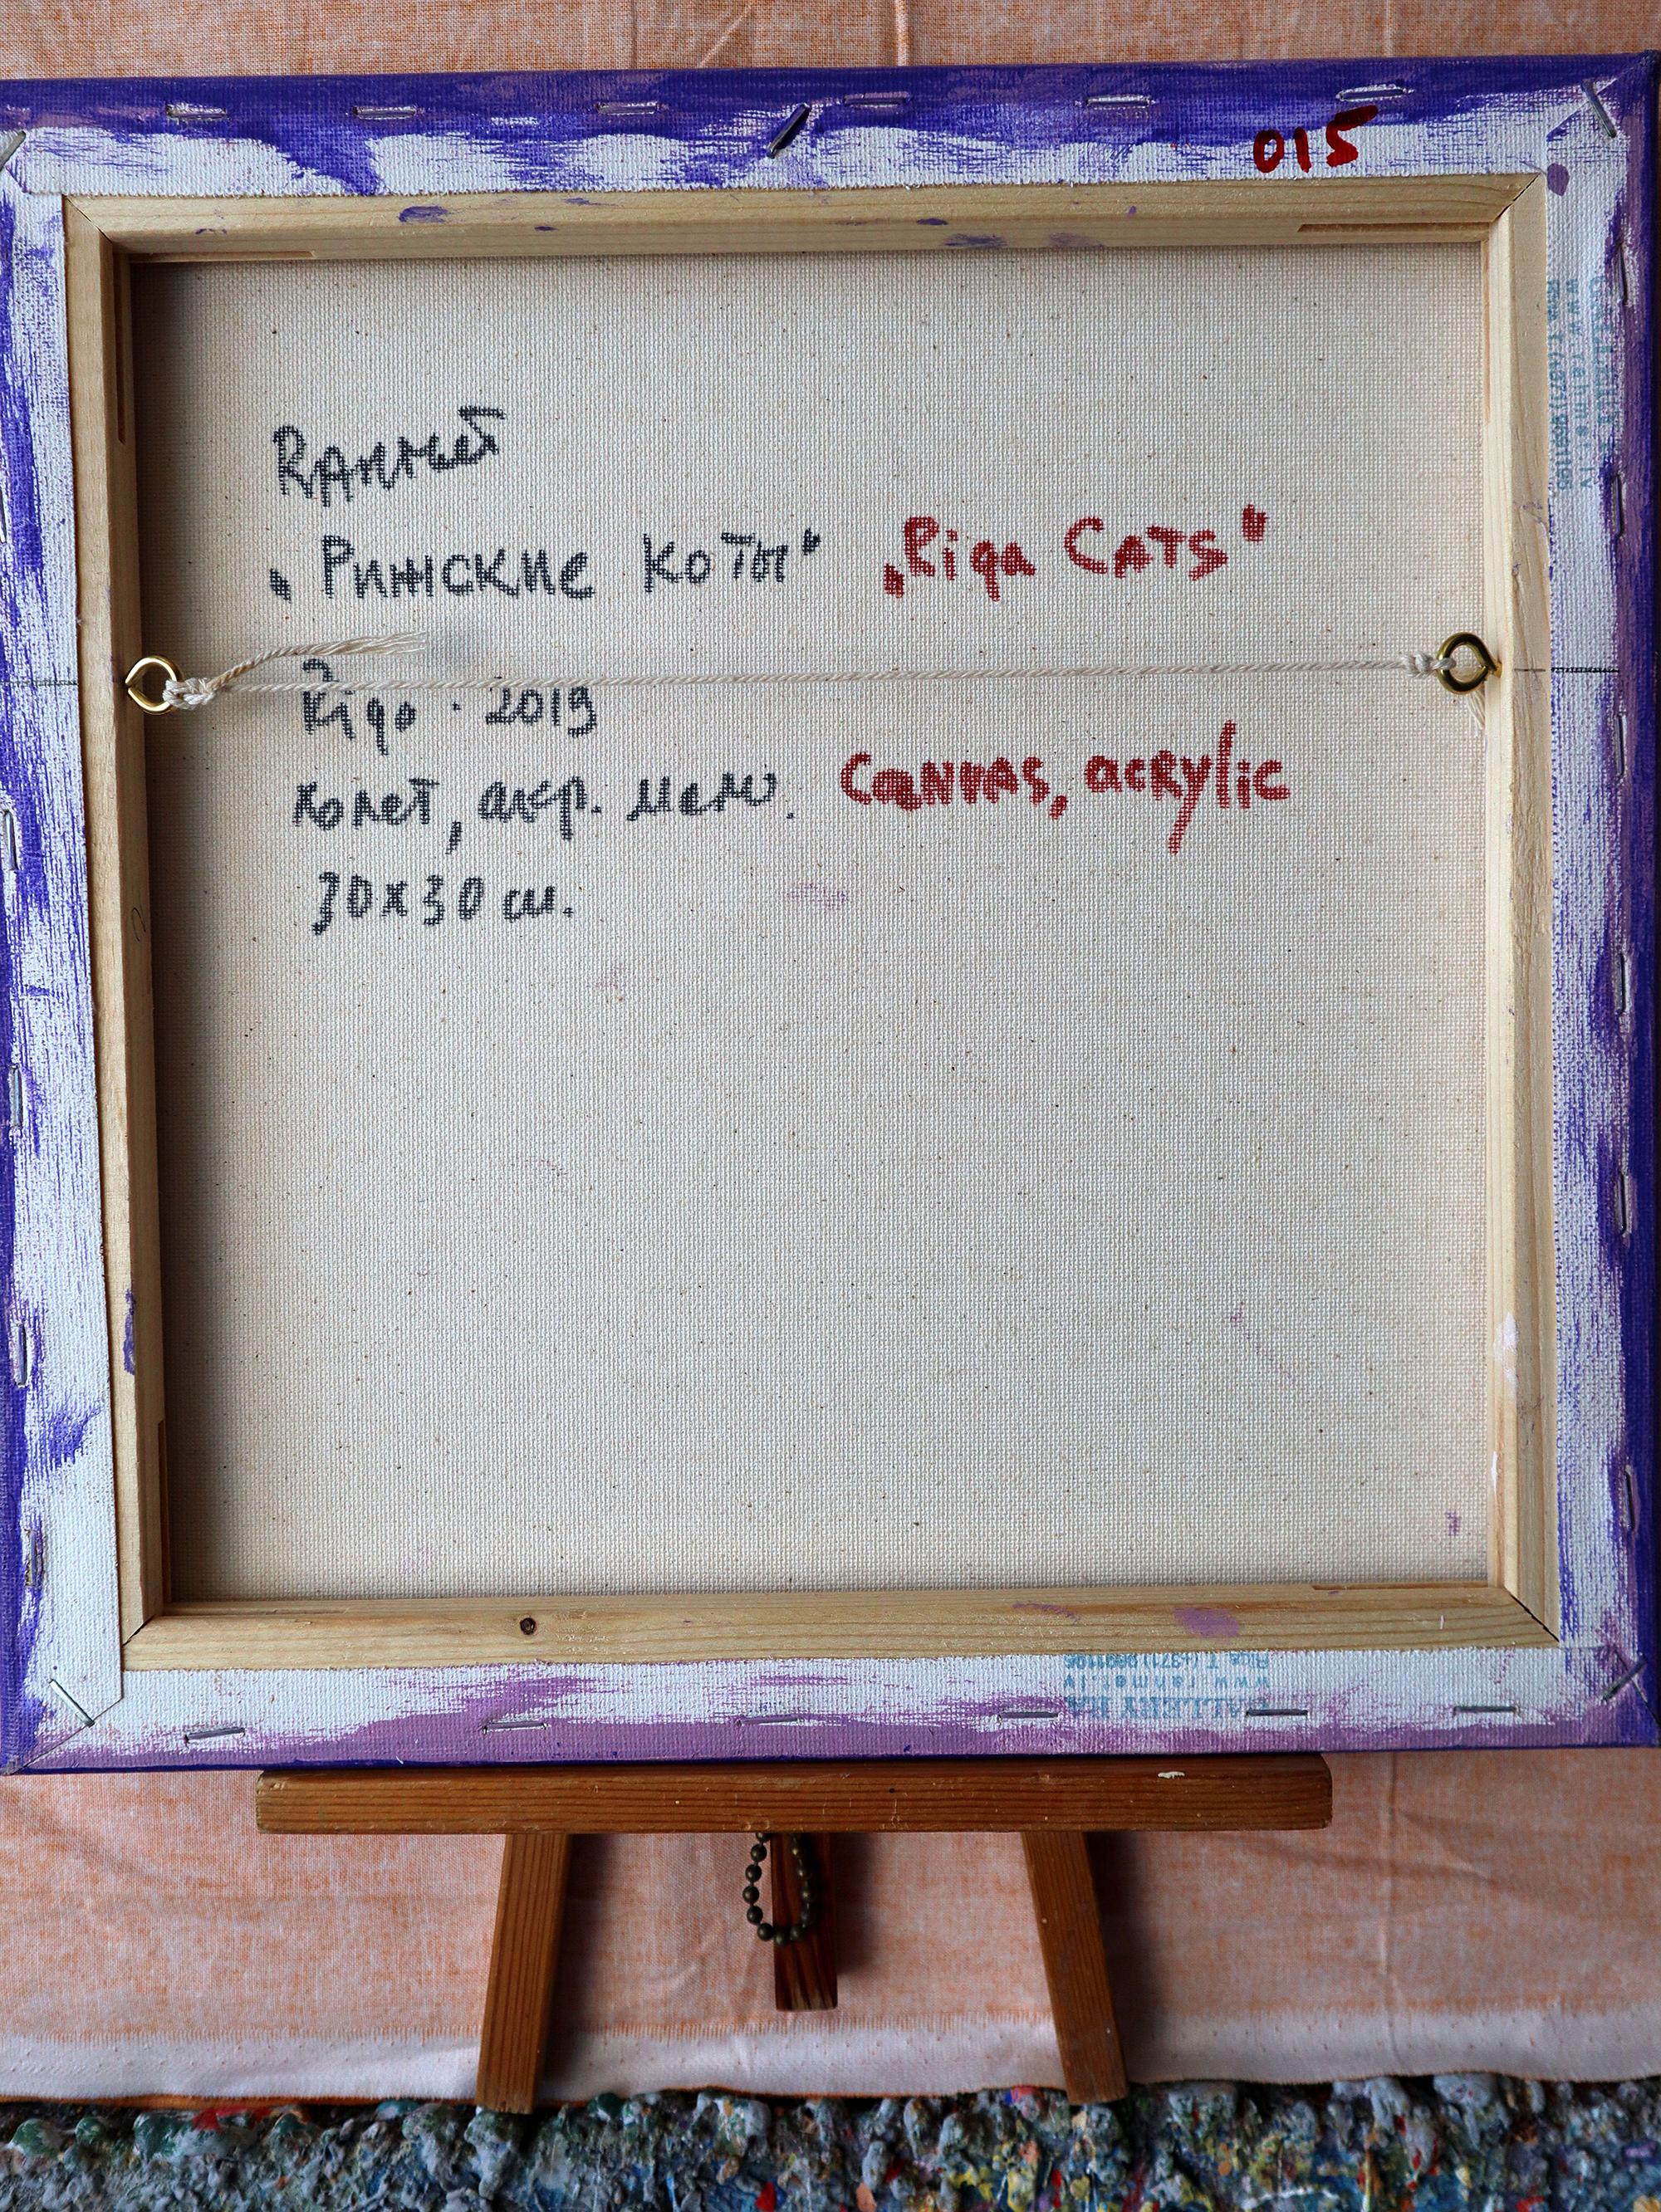 015
Ranmet
„Рижские коты" „Riga Cats"
Riga · 2019
холст, акр. Canvas, acrylic
30x30 см.
www.ranmet.lv